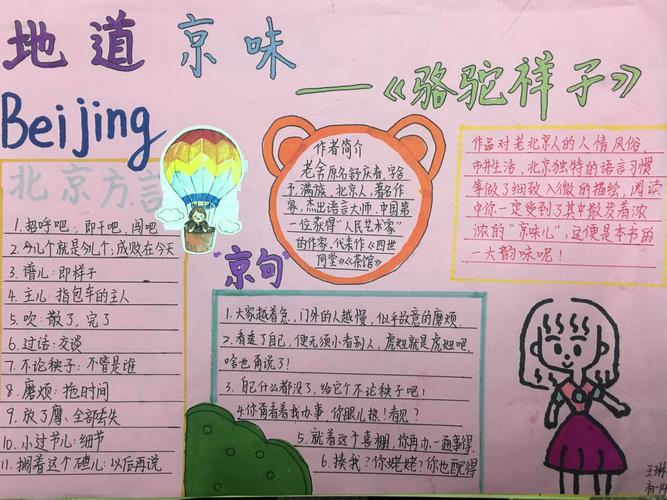 地道京味
——《骆驼祥子》
Beijing
北京方言
1. 招呼吧：即干吧，闯吧
2. 今儿个就是今儿个，成败在今天
3. 谱儿：即样子
4. 主儿：指包车的主人
5. 吹：散了，完了
6. 过话：交谈
7. 不论秧子：不管是谁
8. 磨烦：拖时间
9. 放了鹰：全部丢失
10. 小过节儿：细节
11. 搁着这个碴儿：以后再说
作者简介
老舍原名舒庆春，字舍
予，满族，北京人，著名作
家，杰出语言大师，中国第
一位获得“人民艺术家”
的作家。代表作《四世
同堂》《茶馆》
作品对老北京人的人情风俗、
市井生活、北京独特的语言习惯
等做了细致入微的描绘，阅读
中你一定受到了其中散发着浓
浓的“京味儿”，这便是本书的
一大韵味呢！
“京句”
1. 大家越着急，门外的人越慢，似乎故意的磨烦
2. 看透了自己，便无须小看别人，虎妞就是虎妞吧，
啥也甭说了！
3. 自己什么都没了，给它个不论秧子吧！
4. 你看看我办事，你眼儿热！看见？
5. 就着这个喜棚，你再办一通事得
6. 揍我？你姥姥？你也配得
王琳